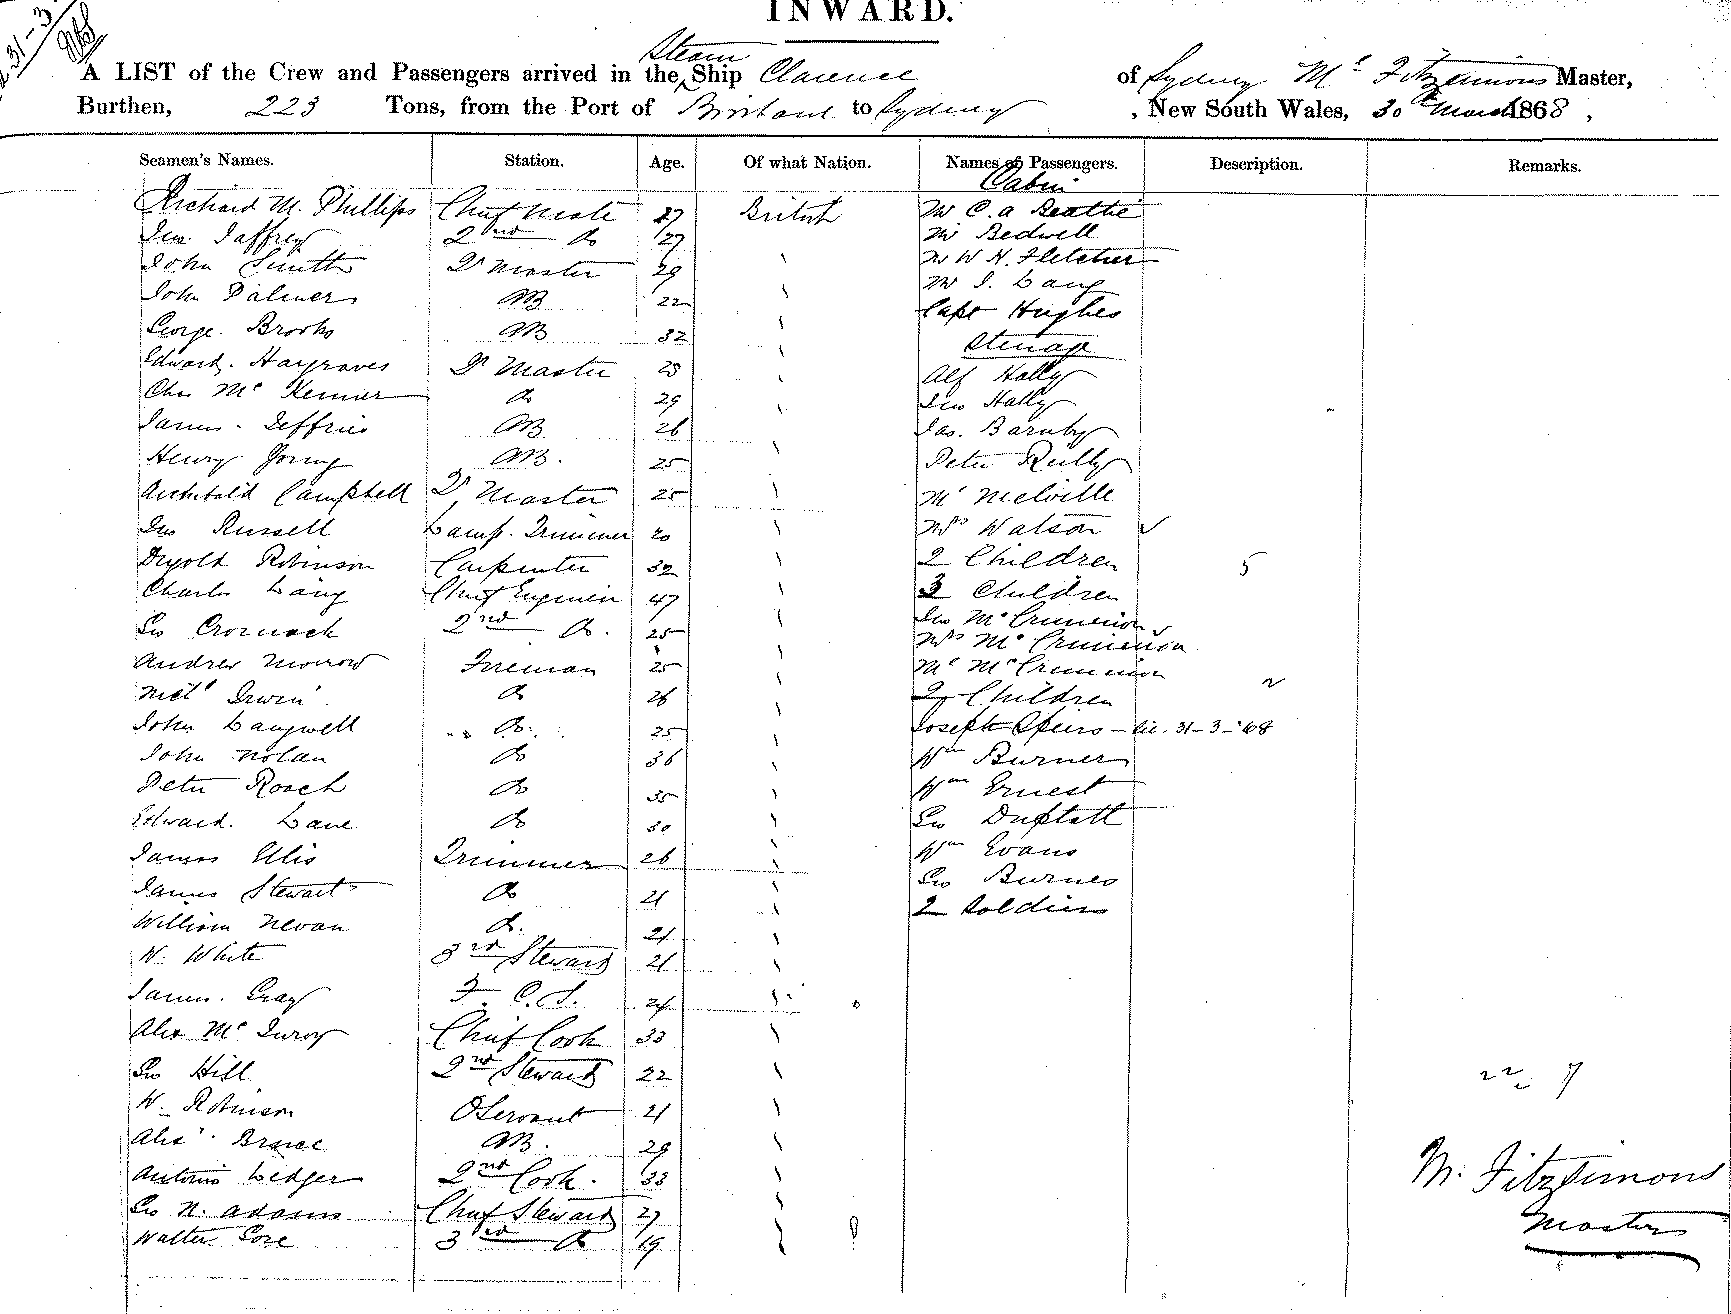 INWARD.
A LIST of the Crew and Passengers arrived in the Steam Ship Clarence of Sydney Mc Fitzsimons Master,
Burthen, 223 Tons, from the Port of Brisbane to Sydney, New South Wales, 30th March 1868,
Seamen's Names. Station. Age. Of what Nation. Names of Passengers. Description. Remarks.
Cabin
Richard M. Phillips Chief Mate 27 British Mr C. A Beattie
Jno Jaffrey 2nd Do 27 Mr Bedwell
John Smith Qr Master 29 Mr W H. Fletcher
John Palmer AB 22 Mr J. Lang
George Brooks AB 32 Capt Hughes
Steerage
Edward Hargraves Qr Master 25 Alf Hally
Chas Mc Do 29 Jno Hally
James Jeffries AB 26 Jas. Barnby
Henry Young AB. 25 Peter Reilly
Archibald Campbell Qr Master 25 Mr Melville
Jno Russell Lamp Trimmer 20 Mrs Watson
Robinson Carpenter 32 2 Children 5
Charles Lang Chief Engineer 47 3 Children
Geo Cromack 2nd Do. 25 Jno McCrimmon
Mrs McCrimmon
Andrew Morrow Fireman 25 Mr McCrimmon
Michl Irwin Do 26 2 Children 2
John Langwell Do. 25 Joseph Speirs - 31-3-'68
John Nolan Do 36 Wm Burner
Peter Roach Do 35 Wm Ernest
Edward Lane Do 30 Geo Duptatt
James Ellis Trimmer 26 Wm Evans
James Stewart Do 21 Geo Burnes
William Nevan Do. 21 2 Soldiers
W. White 3rd Steward 21
James Gray F. C. S. 24
Alex Mc Chief Cook 33
Geo Hill 2nd Steward 22
W. Robinson O Servant 21
Alex Bruce AB. 29
Antonio Ledger 2nd Cook. 33
Geo N. Adams Chief Steward 27
Walter Gore 3rd Do 19
22 7
M. Fitzsimons
Master